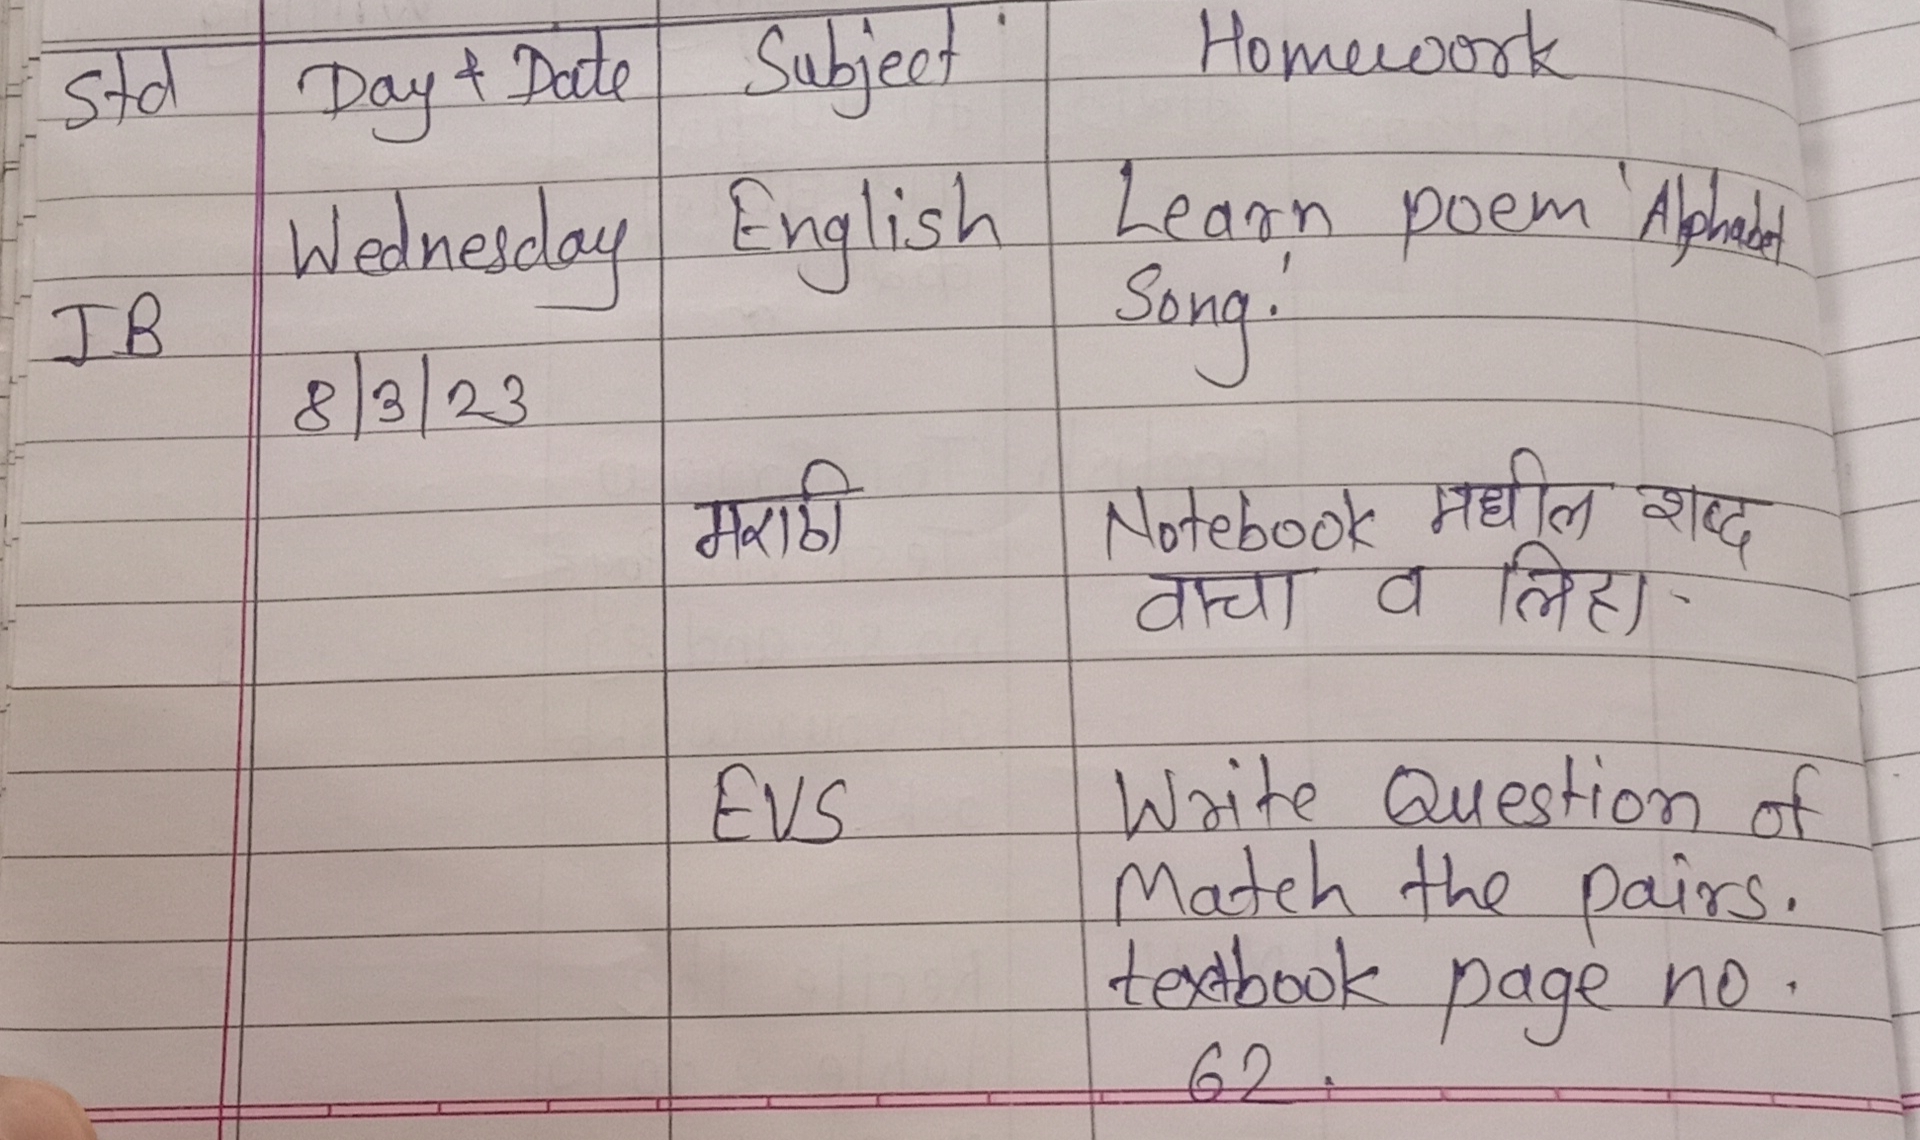 Std Day & Date Subject Homework
Wednesday English Learn poem 'Alphabet
Song.'
IB
8/3/23
मराठी Notebook मधील शब्द
वाचा व लिहा.
EVS Write Question of
Match the pairs.
textbook page no.
62.